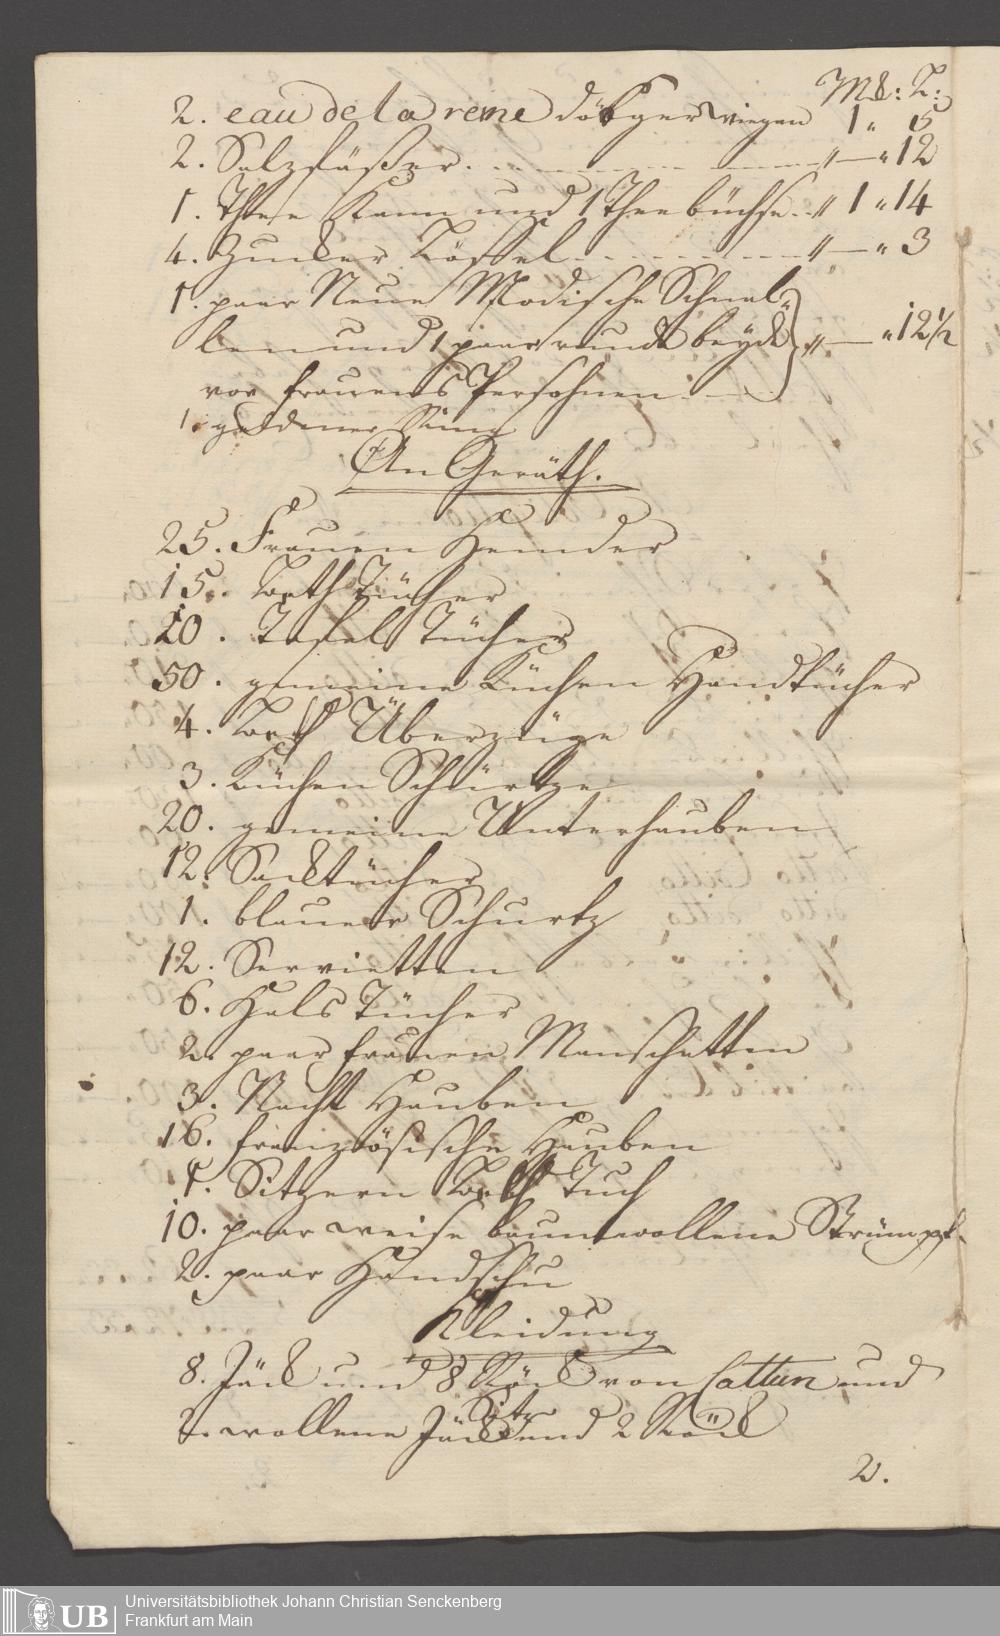 Mk: L:
2. eau de la reine wiegen 1 " 5
2. Saltzfäßer " — " 12
1. Thee Kann und 1 Thee büchse " 1 " 14
4. Zucker Löffel " — " 3
1. paar Neue Modische Schnal-
len und 1 paar runde beyde " — " 12 1/2
vor frauens Persohnen
1 goldener Ring
An Geräth.
25. Frauen Hemder
15. Tücher
20. Tafel Tücher
50. gemeine Küchen Handtücher
4. Überzüge
3. Küchen Schürtze
20. gemeine Unterhauben
12. Sacktücher
1. blauer Schurtz
12. Servietten
6. Hals Tücher
2. paar frauen Manschetten
3. Nacht Hauben
16. französische Hauben
1. Sitzern Tuch
10. paar weise baumwollene Strümpf
2. paar Handschu
Kleidung
8. Jäck und 8 Röck von Cattun und Sitz
2. wollene Jäck und 2 Röck
2.
Universitätsbibliothek Johann Christian Senckenberg
Frankfurt am Main
UB